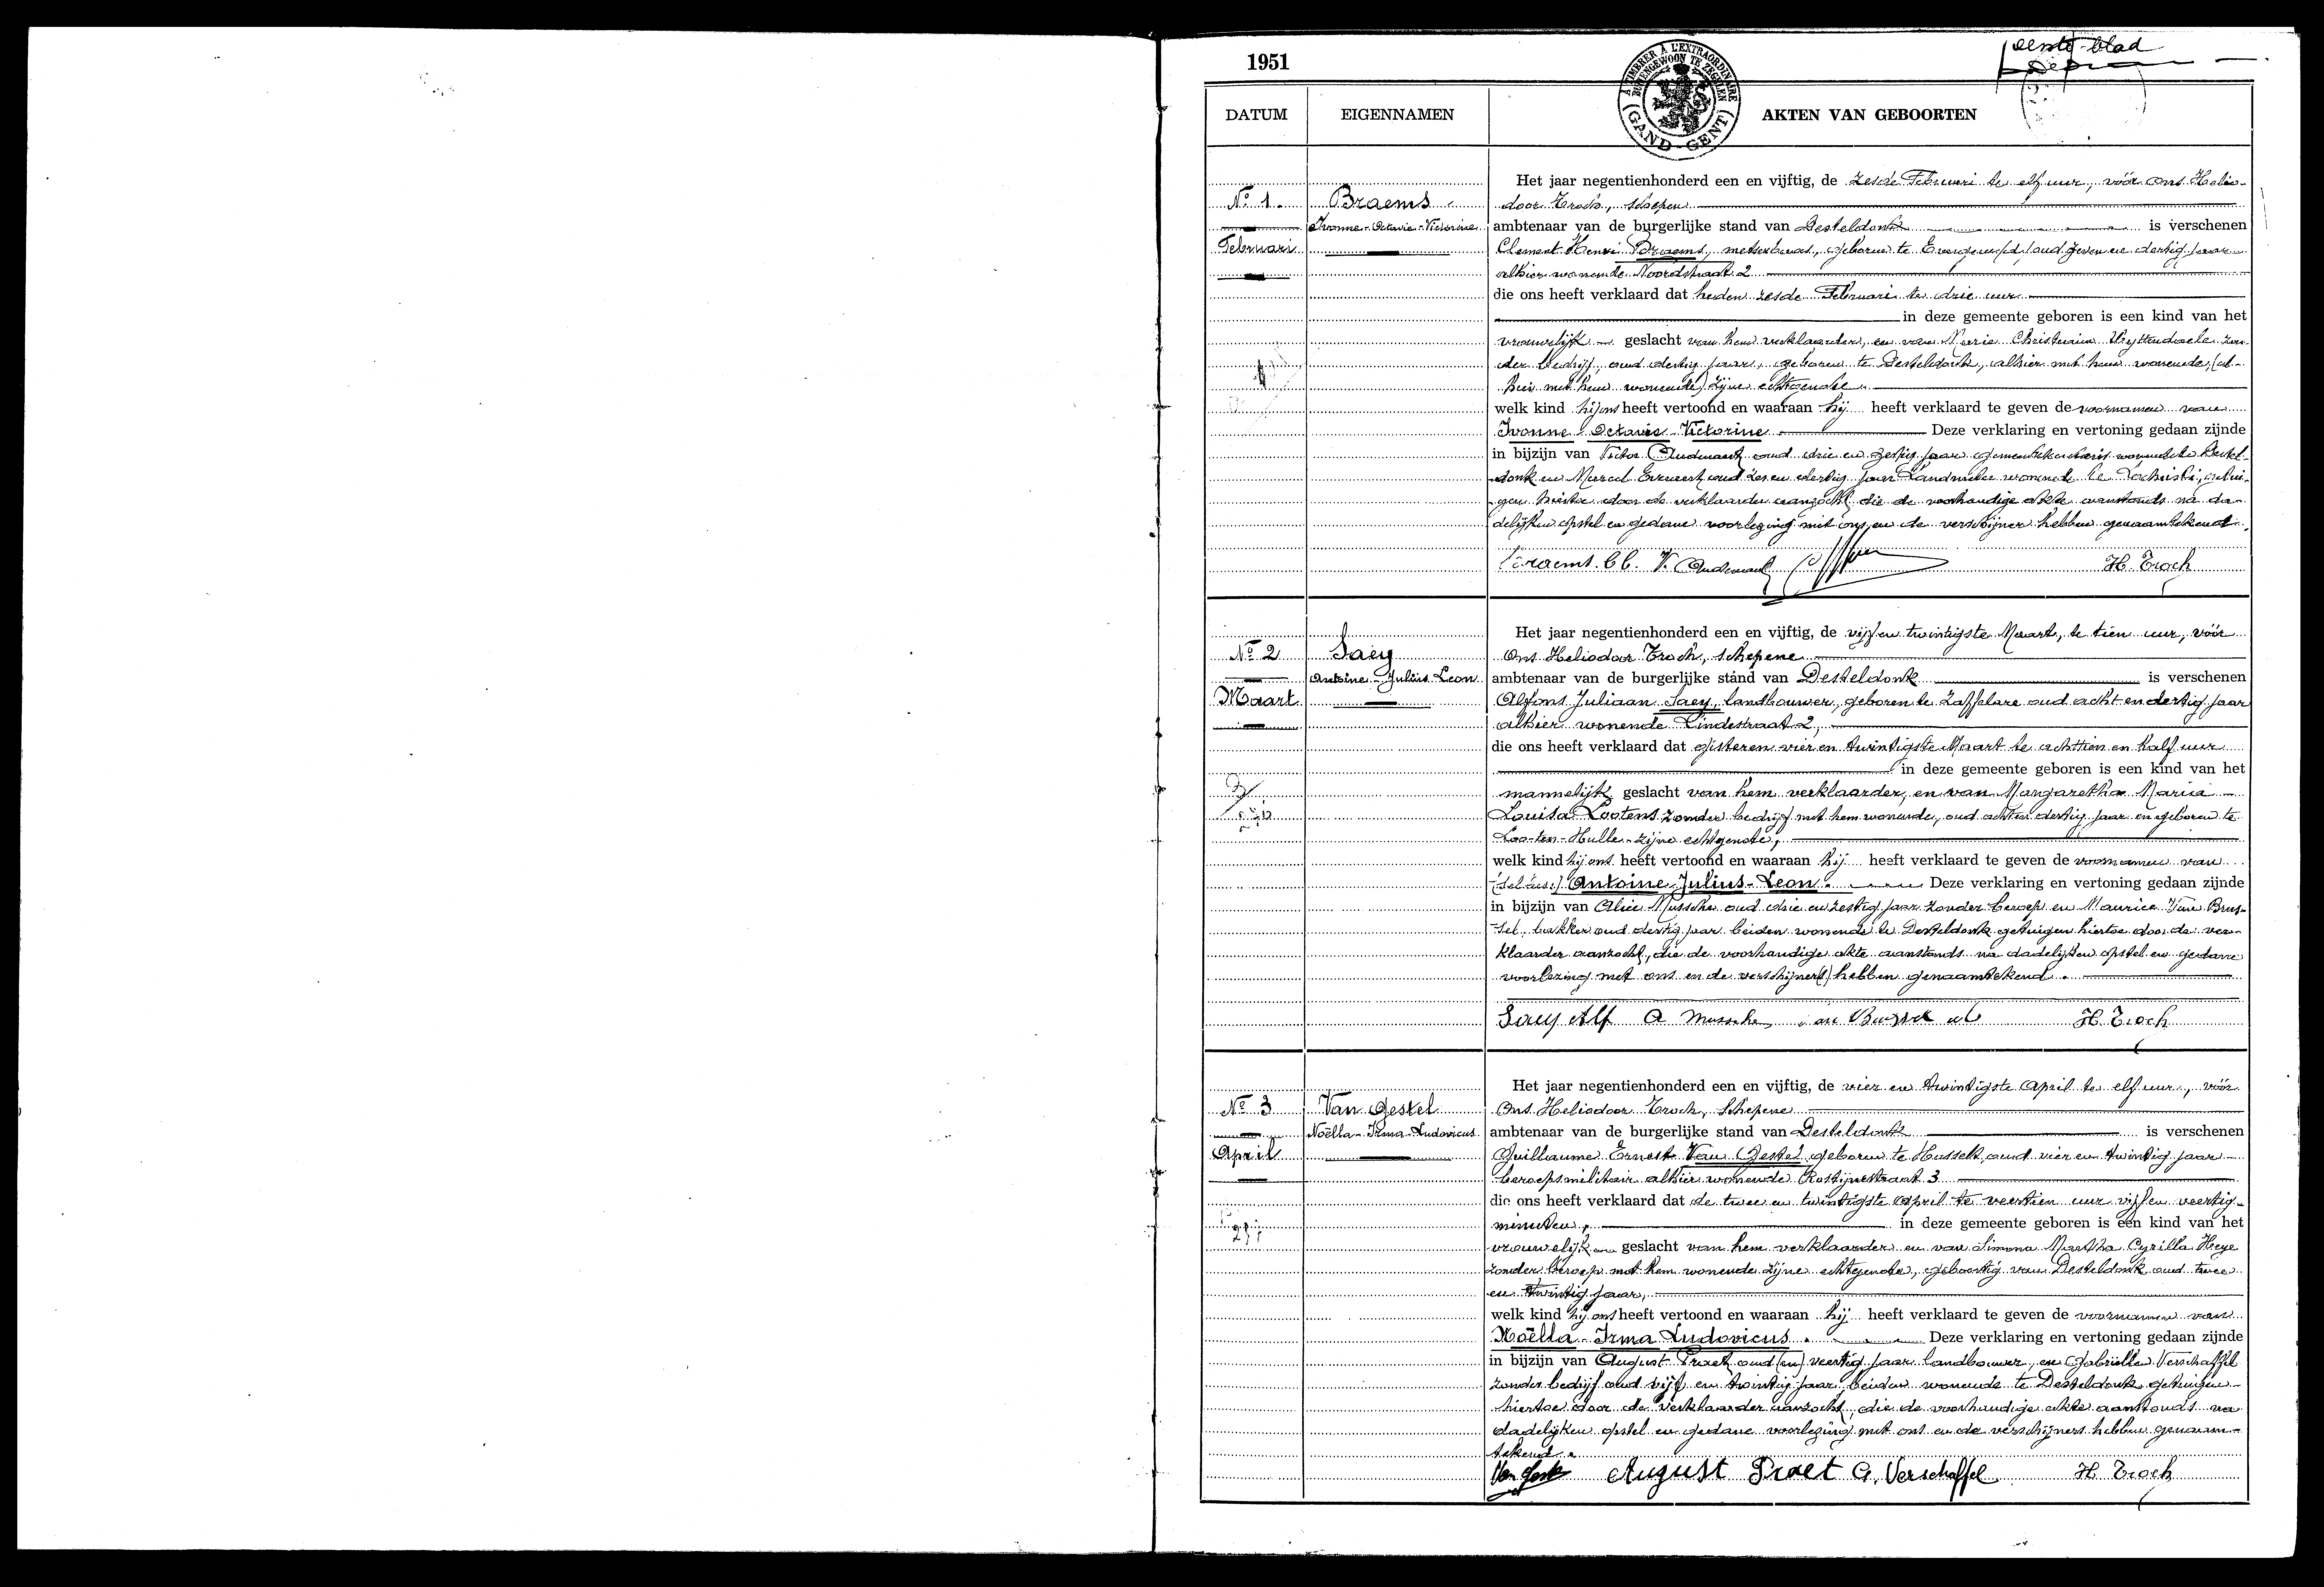 1951
eerste blad
A TIMBRER À L'EXTRAORDINAIRE
BUITENGEWOON TE ZEGELEN
(GAND - GENT)
DATUM EIGENNAMEN AKTEN VAN GEBOORTEN
Het jaar negentienhonderd een en vijftig, de zesde Februari te elf uur, vóór Ons Helio-
No 1. Braems door Troch, schepen
Ivonne-Octavie-Victorine ambtenaar van de burgerlijke stand van Desteldonk is verschenen
Februari Clement Henri Braems, geboren te oud zeven en dertig jaar
alhier wonende Noordstraat 2
die ons heeft verklaard dat heden zesde Februari te drie uur
in deze gemeente geboren is een kind van het
vrouwelijk geslacht van hem verklaarder, en van Marie Christina Uyttendaele zon-
der bedrijf, oud dertig jaar, geboren te Desteldonk, alhier met hem wonende, (al-
hier met hem wonende) zijne echtgenote
welk kind hij ons heeft vertoond en waaraan hij heeft verklaard te geven de voornamen van
Ivonne Octavie Victorine Deze verklaring en vertoning gedaan zijnde
in bijzijn van Victor Audenaert oud drie en zestig jaar wonende te Destel-
donk en Marcel Everaert oud zes en dertig jaar wonende te Lochristi, getui-
gen hiertoe door de verklaarder aanzocht die de voorhandige akte aanstonds na da-
delijken opstel en gedane voorlezing met ons en de verschijner hebben genaamtekend.
Braems Cl. V. Audenaert H. Troch
Het jaar negentienhonderd een en vijftig, de vijf en twintigste Maart, te tien uur, vóór
No 2 Saey Ons Heliodoor Troch, schepene
Antoine-Julius Leon ambtenaar van de burgerlijke stand van Desteldonk is verschenen
Maart Alfons Juliaan Saey, landbouwer, geboren te Zaffelare oud acht en dertig jaar
alhier wonende Lindestraat 2,
die ons heeft verklaard dat gisteren vier en twintigste Maart te achttien en half uur
in deze gemeente geboren is een kind van het
mannelijk geslacht van hem verklaarder, en van Margaretha Maria
Louisa Lootens zonder bedrijf met hem wonende, oud acht en dertig jaar en geboren te
Loo-ten-Hulle zijne echtgenote,
welk kind hij ons heeft vertoond en waaraan hij heeft verklaard te geven de voornamen van
Antoine-Julius-Leon. Deze verklaring en vertoning gedaan zijnde
in bijzijn van Alice Mussche oud drie en zestig jaar zonder beroep en Maurice Van Brus-
sel, bakker oud dertig jaar beiden wonende te Desteldonk getuigen hiertoe door de ver-
klaarder aanzocht, die de voorhandige akte aanstonds na dadelijken opstel en gedane
voorlezing met ons en de verschijner(s) hebben genaamtekend.
Saey Alf A Mussche H. Troch
Het jaar negentienhonderd een en vijftig, de vier en twintigste April te elf uur, vóór
No 3 Van Gestel Ons Heliodoor Troch, Schepene
Noëlla-Irma-Ludovicus ambtenaar van de burgerlijke stand van Desteldonk is verschenen
April Guillaume Ernest Van Gestel geboren te Hasselt oud vier en twintig jaar
beroepsmilitair alhier wonende Rostijnestraat 3
die ons heeft verklaard dat de twee en twintigste April te veertien uur vijf en veertig
minuten, in deze gemeente geboren is een kind van het
vrouwelijk geslacht van hem verklaarder en van Simona Martha Cyrilla Heye
zonder beroep met hem wonende zijne echtgenote, geboortig van Desteldonk oud twee
en twintig jaar,
welk kind hij ons heeft vertoond en waaraan hij heeft verklaard te geven de voornamen van
Noëlla-Irma Ludovicus. Deze verklaring en vertoning gedaan zijnde
in bijzijn van August Praet oud (en) veertig jaar landbouwer, en Gabriëlla Verschaffel
zonder bedrijf oud vijf en twintig jaar beiden wonende te Desteldonk getuigen
hiertoe door de verklaarder aanzocht, die de voorhandige akte aanstonds na
dadelijken opstel en gedane voorlezing met ons en de verschijners hebben genaam-
tekend.
Van Gestel August Praet G. Verschaffel H Troch